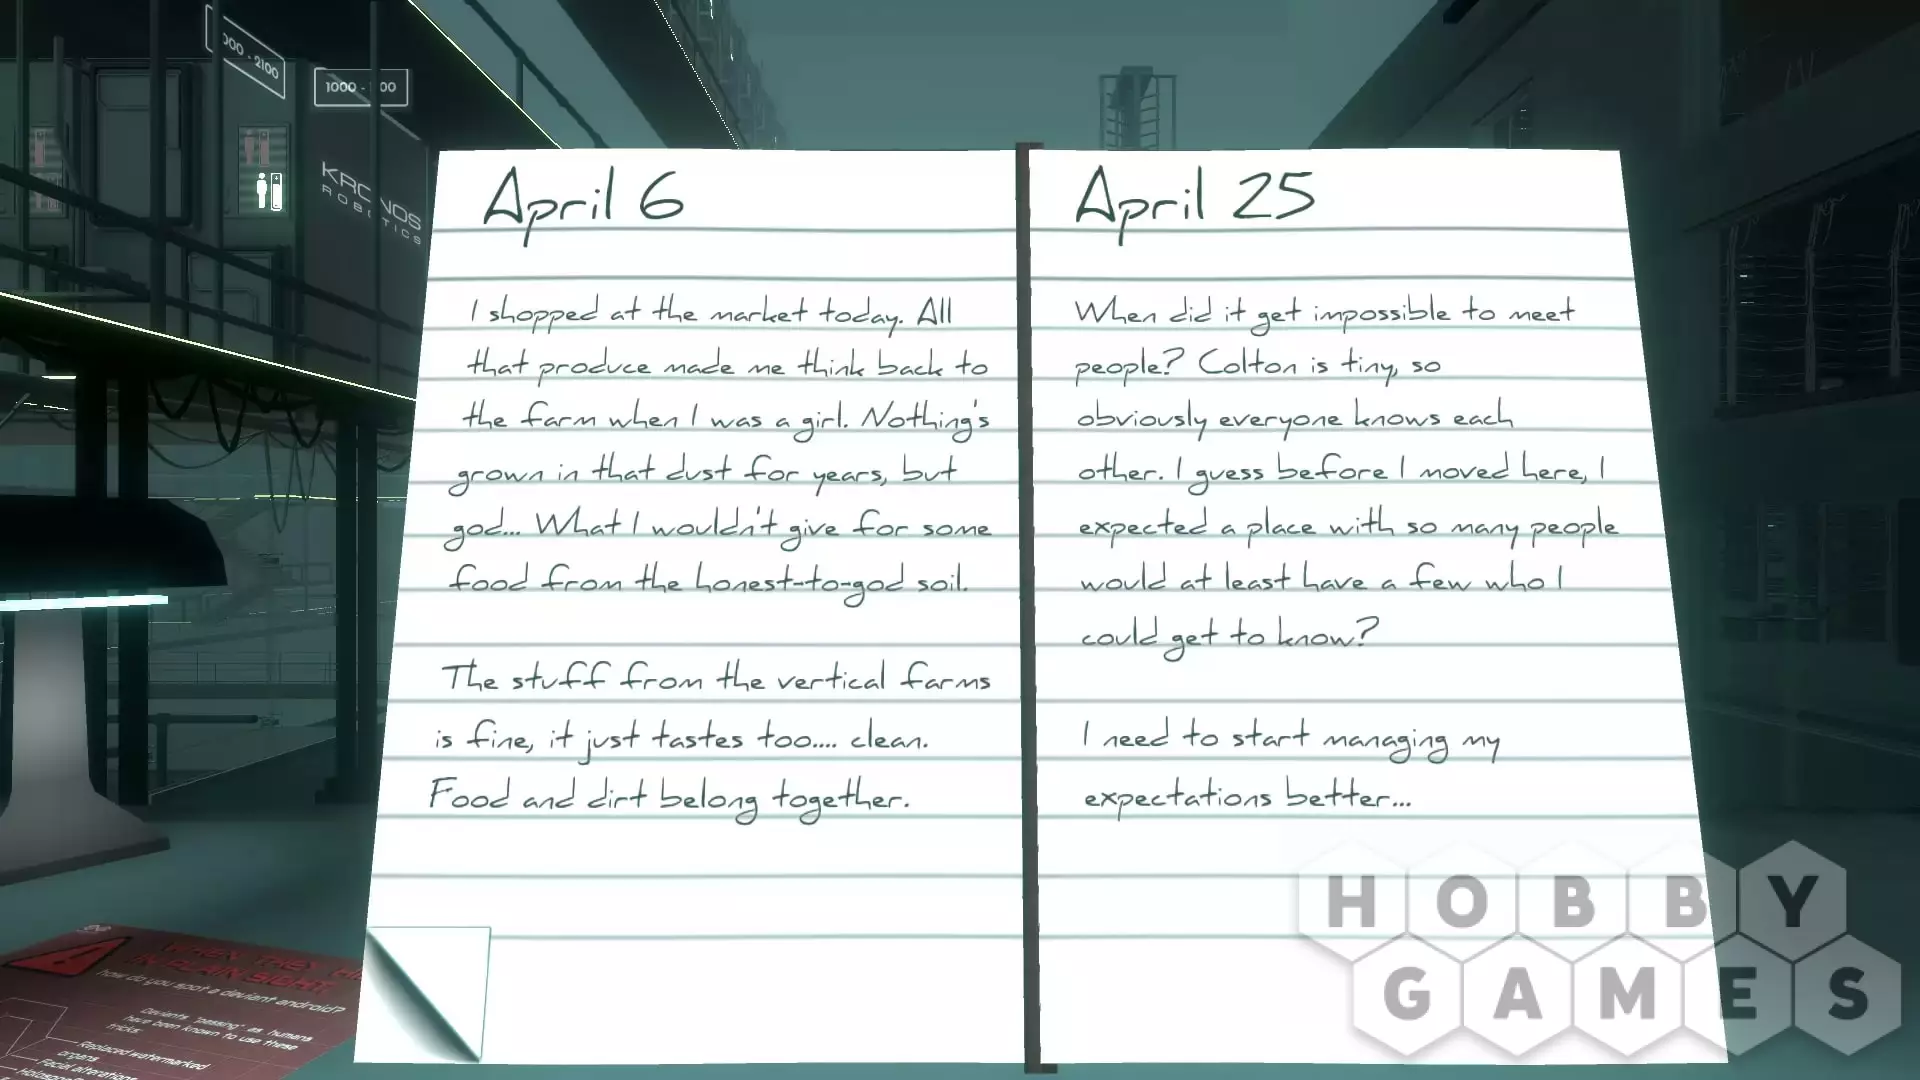 000 - 2100
1000 - 00
KRONOS
ROBOTICS
April 6
I shopped at the market today. All
that produce made me think back to
the farm when I was a girl. Nothing's
grown in that dust for years, but
god... What I wouldn't give for some
food from the honest-to-god soil.
The stuff from the vertical farms
is fine, it just tastes too.... clean.
Food and dirt belong together.
April 25
When did it get impossible to meet
people? Colton is tiny, so
obviously everyone knows each
other. I guess before I moved here, I
expected a place with so many people
would at least have a few who I
could get to know?
I need to start managing my
expectations better...
WHEN THEY HI
IN PLAIN SIGHT
how do you spot a deviant android?
Deviants "passing" as humans
have been known to use these
tricks:
Replaced watermarked
organs
Facial alterations
HOBBY
GAMES